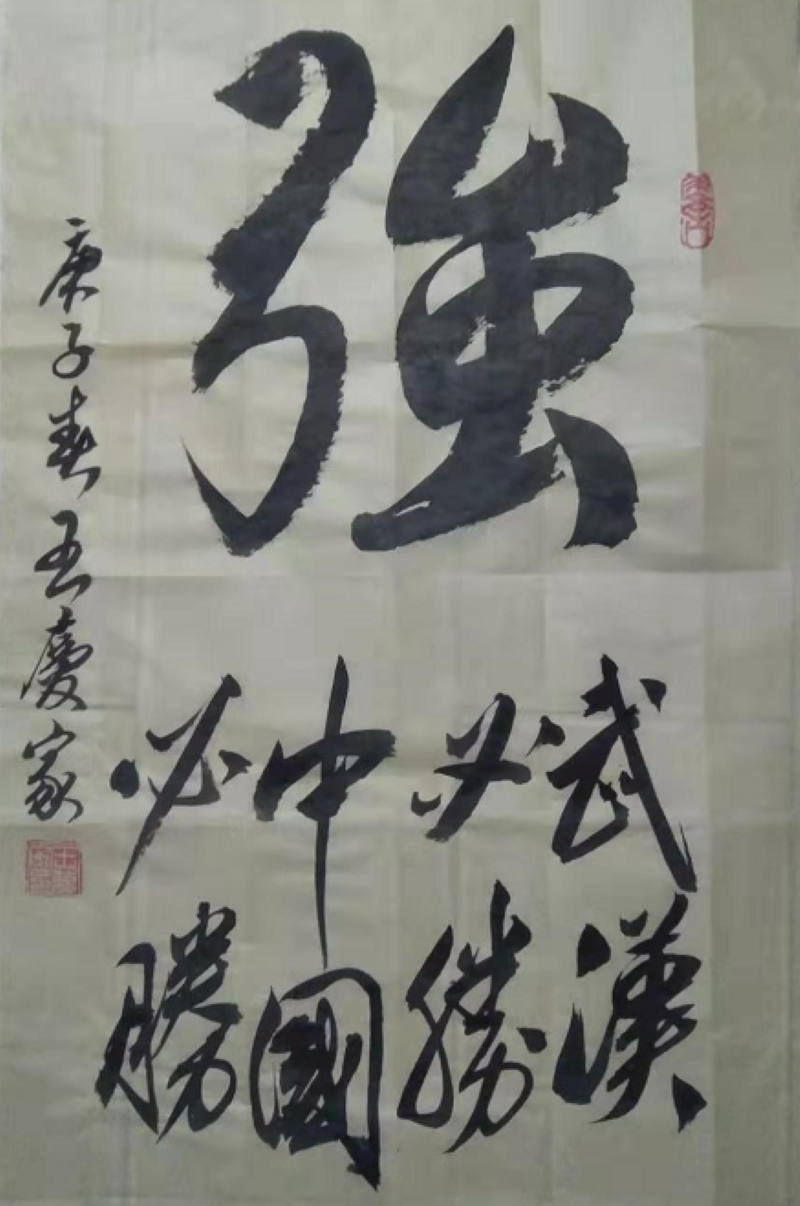 強
武漢
必勝
中國
必勝
庚子春王慶家